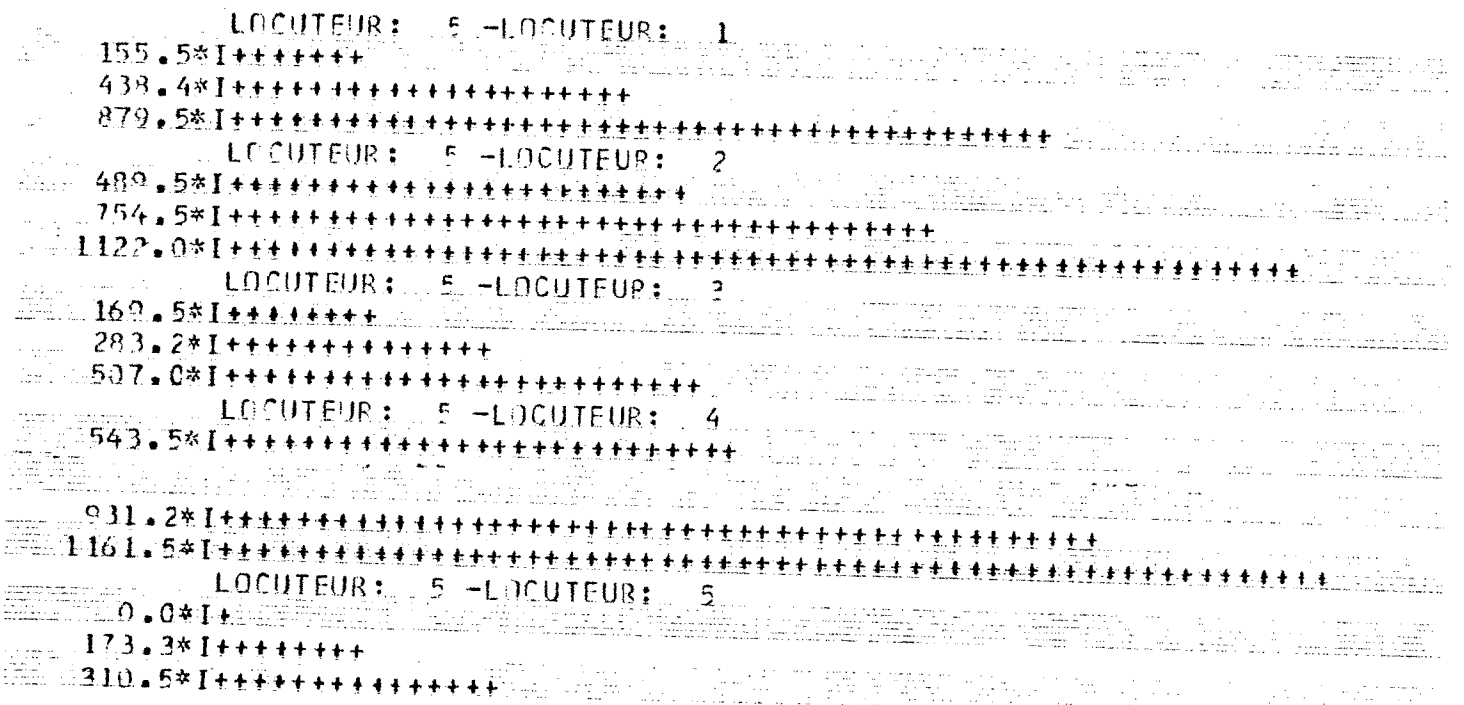 LOCUTEUR:  5 -LOCUTEUR:  1
155.5*I+++++++
438.4*I+++++++++++++++++++++
879.5*I+++++++++++++++++++++++++++++++++++++++++++
LOCUTEUR:  5 -LOCUTEUR:  2
489.5*I++++++++++++++++++++++++
754.5*I+++++++++++++++++++++++++++++++++++++
1122.0*I++++++++++++++++++++++++++++++++++++++++++++++++++++++++
LOCUTEUR:  5 -LOCUTEUR:  3
169.5*I++++++++
283.2*I++++++++++++++
507.0*I+++++++++++++++++++++++++
LOCUTEUR:  5 -LOCUTEUR:  4
543.5*I+++++++++++++++++++++++++++
931.2*I++++++++++++++++++++++++++++++++++++++++++++++
1161.5*I++++++++++++++++++++++++++++++++++++++++++++++++++++++++++
LOCUTEUR:  5 -LOCUTEUR:  5
0.0*I+
173.3*I++++++++
310.5*I+++++++++++++++